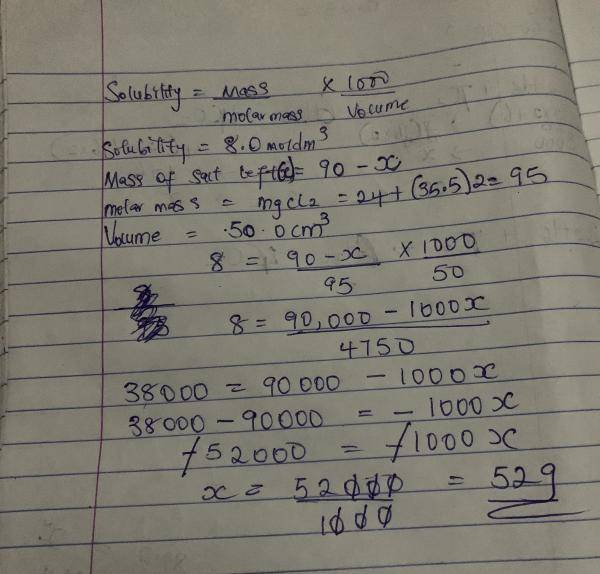 Solubility = Mass / molar mass × 1000 / Volume
Solubility = 8.0 mol dm³
Mass of salt left(x) = 90 - x
molar mass = mgcl2 = 24 + (35.5)2 = 95
Volume = .50.0cm³
8 = 90 - x / 95 × 1000 / 50
8 = 90,000 - 1000x / 4750
38000 = 90000 - 1000x
38000 - 90000 = - 1000x
-52000 = -1000x
x = 52000 / 1000 = 52g